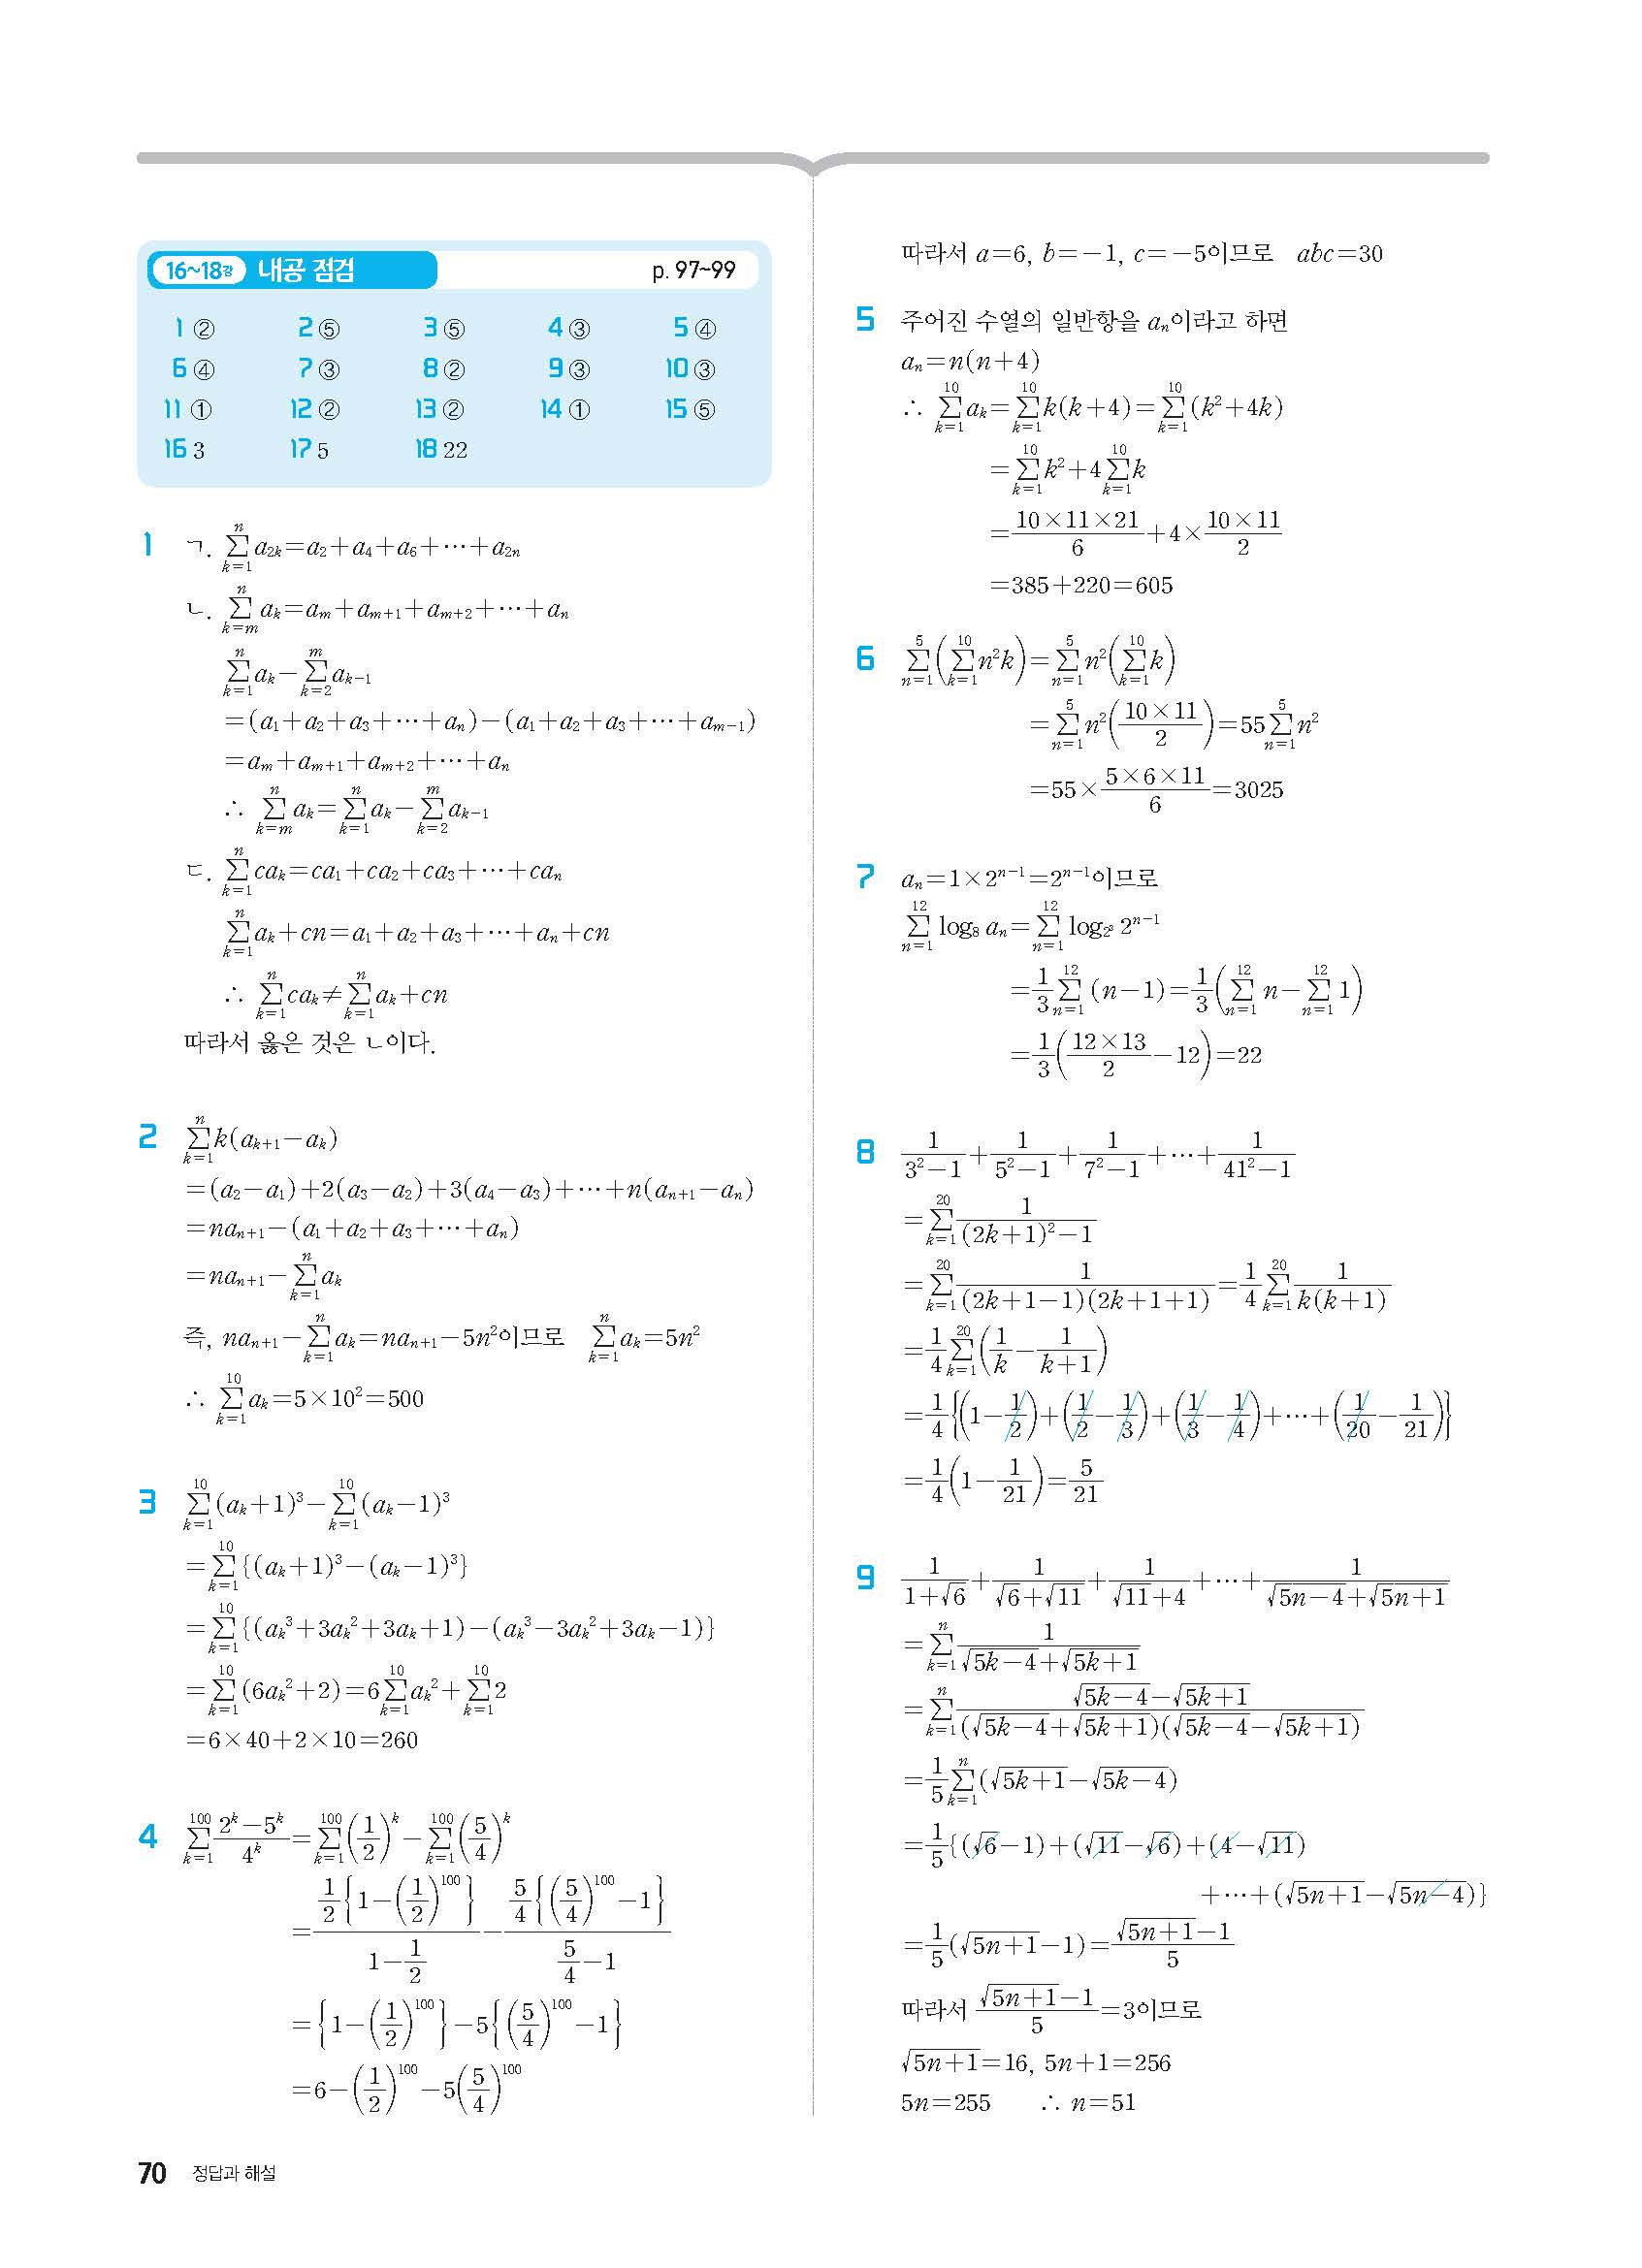 16~18강 내공 점검 p. 97~99
1 ② 2 ⑤ 3 ⑤ 4 ③ 5 ④
6 ④ 7 ③ 8 ② 9 ③ 10 ③
11 ① 12 ② 13 ② 14 ① 15 ⑤
16 3 17 5 18 22
1 ㄱ. \sum_{k=1}^{n} a_{2k}=a_2+a_4+a_6+⋯+a_{2n}
ㄴ. \sum_{k=m}^{n} a_k=a_m+a_{m+1}+a_{m+2}+⋯+a_n
\sum_{k=1}^{n} a_k-\sum_{k=2}^{m} a_{k-1}
=(a_1+a_2+a_3+⋯+a_n)-(a_1+a_2+a_3+⋯+a_{m-1})
=a_m+a_{m+1}+a_{m+2}+⋯+a_n
∴ \sum_{k=m}^{n} a_k=\sum_{k=1}^{n} a_k-\sum_{k=2}^{m} a_{k-1}
ㄷ. \sum_{k=1}^{n} ca_k=ca_1+ca_2+ca_3+⋯+ca_n
\sum_{k=1}^{n} a_k+cn=a_1+a_2+a_3+⋯+a_n+cn
∴ \sum_{k=1}^{n} ca_k≠\sum_{k=1}^{n} a_k+cn
따라서 옳은 것은 ㄴ이다.
2 \sum_{k=1}^{n} k(a_{k+1}-a_k)
=(a_2-a_1)+2(a_3-a_2)+3(a_4-a_3)+⋯+n(a_{n+1}-a_n)
=na_{n+1}-(a_1+a_2+a_3+⋯+a_n)
=na_{n+1}-\sum_{k=1}^{n} a_k
즉, na_{n+1}-\sum_{k=1}^{n} a_k=na_{n+1}-5n^2이므로 \sum_{k=1}^{n} a_k=5n^2
∴ \sum_{k=1}^{10} a_k=5×10^2=500
3 \sum_{k=1}^{10} (a_k+1)^3-\sum_{k=1}^{10} (a_k-1)^3
=\sum_{k=1}^{10} {(a_k+1)^3-(a_k-1)^3}
=\sum_{k=1}^{10} {(a_k^3+3a_k^2+3a_k+1)-(a_k^3-3a_k^2+3a_k-1)}
=\sum_{k=1}^{10} (6a_k^2+2)=6\sum_{k=1}^{10} a_k^2+\sum_{k=1}^{10} 2
=6×40+2×10=260
4 \sum_{k=1}^{100} \frac{2^k-5^k}{4^k}=\sum_{k=1}^{100} (\frac{1}{2})^k-\sum_{k=1}^{100} (\frac{5}{4})^k
=\frac{\frac{1}{2}{1-(\frac{1}{2})^{100}}}{1-\frac{1}{2}}-\frac{\frac{5}{4}{(\frac{5}{4})^{100}-1}}{\frac{5}{4}-1}
={1-(\frac{1}{2})^{100}}-5{(\frac{5}{4})^{100}-1}
=6-(\frac{1}{2})^{100}-5(\frac{5}{4})^{100}
따라서 a=6, b=-1, c=-5이므로 abc=30
5 주어진 수열의 일반항을 a_n이라고 하면
a_n=n(n+4)
∴ \sum_{k=1}^{10} a_k=\sum_{k=1}^{10} k(k+4)=\sum_{k=1}^{10} (k^2+4k)
=\sum_{k=1}^{10} k^2+4\sum_{k=1}^{10} k
=\frac{10×11×21}{6}+4×\frac{10×11}{2}
=385+220=605
6 \sum_{n=1}^{5} (\sum_{k=1}^{10} n^2k)=\sum_{n=1}^{5} n^2(\sum_{k=1}^{10} k)
=\sum_{n=1}^{5} n^2(\frac{10×11}{2})=55\sum_{n=1}^{5} n^2
=55×\frac{5×6×11}{6}=3025
7 a_n=1×2^{n-1}=2^{n-1}이므로
\sum_{n=1}^{12} log_8 a_n=\sum_{n=1}^{12} log_{2^3} 2^{n-1}
=\frac{1}{3}\sum_{n=1}^{12} (n-1)=\frac{1}{3}(\sum_{n=1}^{12} n-\sum_{n=1}^{12} 1)
=\frac{1}{3}(\frac{12×13}{2}-12)=22
8 \frac{1}{3^2-1}+\frac{1}{5^2-1}+\frac{1}{7^2-1}+⋯+\frac{1}{41^2-1}
=\sum_{k=1}^{20} \frac{1}{(2k+1)^2-1}
=\sum_{k=1}^{20} \frac{1}{(2k+1-1)(2k+1+1)}=\frac{1}{4}\sum_{k=1}^{20} \frac{1}{k(k+1)}
=\frac{1}{4}\sum_{k=1}^{20} (\frac{1}{k}-\frac{1}{k+1})
=\frac{1}{4}{(1-\frac{1}{2})+(\frac{1}{2}-\frac{1}{3})+(\frac{1}{3}-\frac{1}{4})+⋯+(\frac{1}{20}-\frac{1}{21})}
=\frac{1}{4}(1-\frac{1}{21})=\frac{5}{21}
9 \frac{1}{1+√6}+\frac{1}{√6+√11}+\frac{1}{√11+4}+⋯+\frac{1}{\sqrt{5n-4}+\sqrt{5n+1}}
=\sum_{k=1}^{n} \frac{1}{\sqrt{5k-4}+\sqrt{5k+1}}
=\sum_{k=1}^{n} \frac{\sqrt{5k-4}-\sqrt{5k+1}}{(\sqrt{5k-4}+\sqrt{5k+1})(\sqrt{5k-4}-\sqrt{5k+1})}
=\frac{1}{5}\sum_{k=1}^{n} (\sqrt{5k+1}-\sqrt{5k-4})
=\frac{1}{5}{(√6-1)+(√11-√6)+(4-√11)
+⋯+(\sqrt{5n+1}-\sqrt{5n-4})}
=\frac{1}{5}(\sqrt{5n+1}-1)=\frac{\sqrt{5n+1}-1}{5}
따라서 \frac{\sqrt{5n+1}-1}{5}=3이므로
\sqrt{5n+1}=16, 5n+1=256
5n=255 ∴ n=51
70 정답과 해설